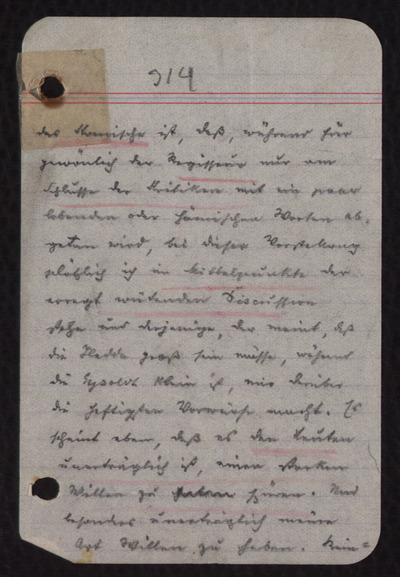 314
das Komische ist, daß, während für
gewönlich der Regisseur nur am
Schlusse der Kritiken mit ein paar
lobenden oder hämischen Worten ab-
getan wird, bei dieser Vorstellung
plötzlich ich im Mittelpunkte der
erregt wütenden Discussion
stehe und derjenige, der meint, daß
die Hedda groß sein müsse, während
die Eysoldt klein ist, mir darüber
die heftigsten Vorwürfe macht. Es
scheint eben, daß es den Leuten
unerträglich ist, einen starken
Willen zu spüren. Und
besonders unerträglich meine
Art Willen zu haben. Kein=